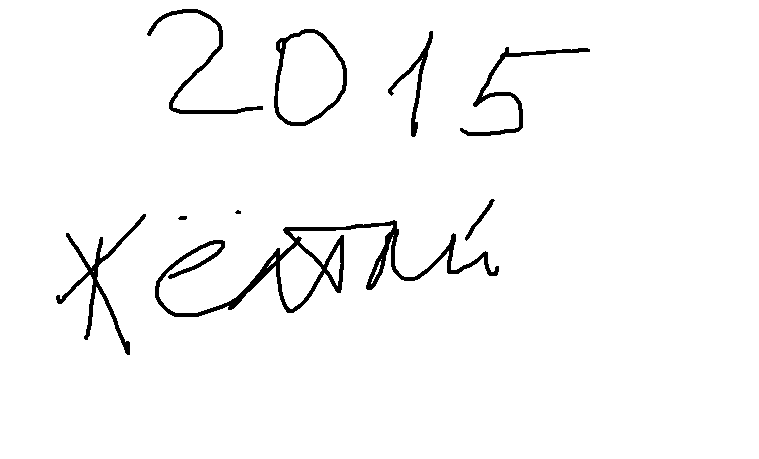 2015
Жёлтый